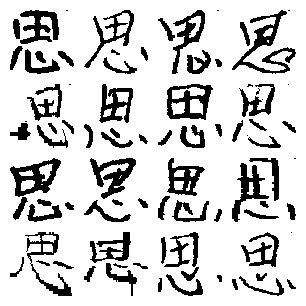 思思思思
思思思思
思思思思
思思思思